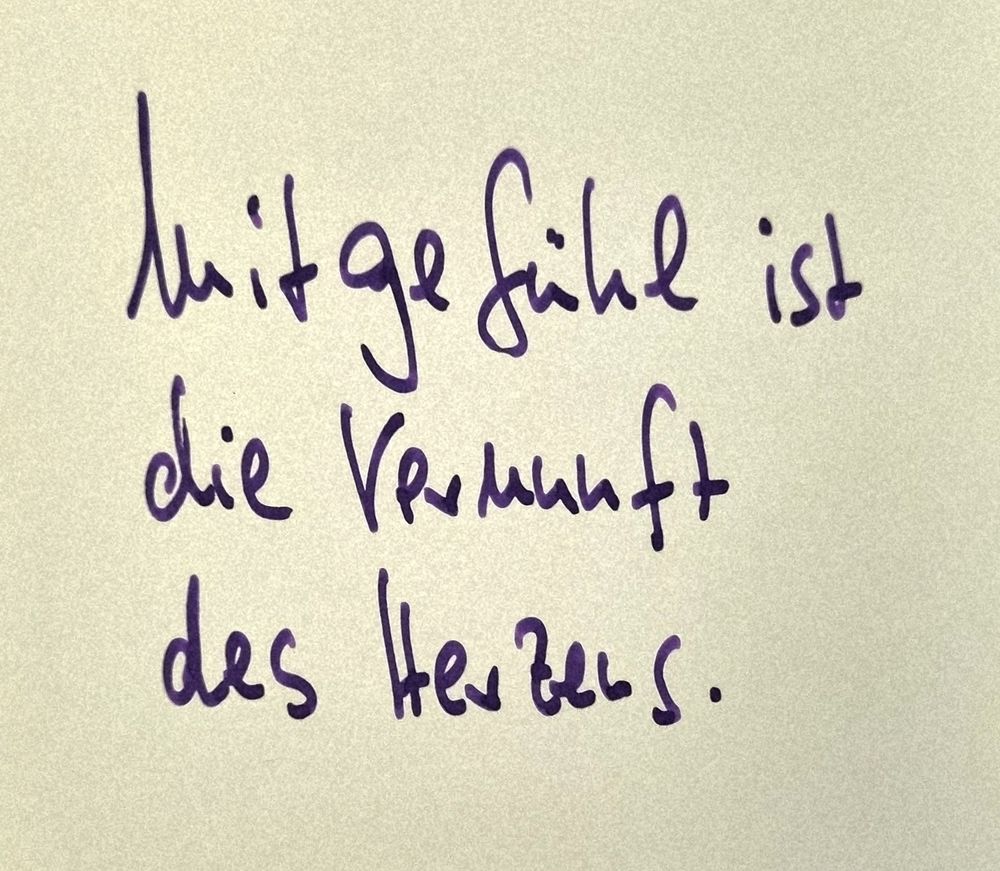 Mitgefühl ist
die Vernunft
des Herzens.